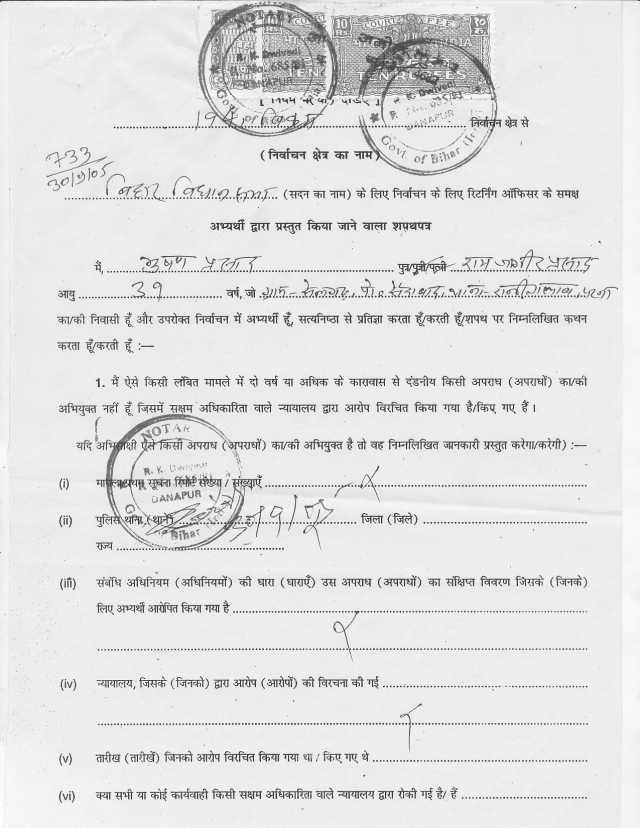 NOTARY
R. K. Dwivedi
R. No. 685/81
DANAPUR
10 Rs COURT FEE १० रु.
INDIA
TEN RUPEES
R. K. Dwivedi
R. No. 685/81
DANAPUR
Govt. of Bihar (India)
निर्वाचन क्षेत्र से
(निर्वाचन क्षेत्र का नाम)
733
30/9/05
बिहार विधान सभा (सदन का नाम) के लिए निर्वाचन के लिए रिटर्निंग ऑफिसर के समक्ष
अभ्यर्थी द्वारा प्रस्तुत किया जाने वाला शपथपत्र
मैं, भुषण प्रसाद पुत्र/पुत्री/पत्नी राम प्रसाद
आयु 39 वर्ष, जो ग्राम- पो० थाना-
का/की निवासी हूँ और उपरोक्त निर्वाचन में अभ्यर्थी हूँ, सत्यनिष्ठा से प्रतिज्ञा करता हूँ/करती हूँ/शपथ पर निम्नलिखित कथन
करता हूँ/करती हूँ :—
1. मैं ऐसे किसी लंबित मामले में दो वर्ष या अधिक के कारावास से दंडनीय किसी अपराध (अपराधों) का/की
अभियुक्त नहीं हूँ जिसमें सक्षम अधिकारिता वाले न्यायालय द्वारा आरोप विरचित किया गया है/किए गए हैं ।
यदि अभिसाक्षी ऐसे किसी अपराध (अपराधों) का/की अभियुक्त है तो वह निम्नलिखित जानकारी प्रस्तुत करेगा/करेगी) :—
NOTARY
R. K. Dwivedi
DANAPUR
Govt. of Bihar
(i) मामला/प्रथम सूचना रिपोर्ट संख्या / संख्याएँ
(ii) पुलिस थाना (थाने) जिला (जिले)
राज्य
(iii) संबंधि अधिनियम (अधिनियमों) की धारा (धाराएँ) उस अपराध (अपराधों) का संक्षिप्त विवरण जिसके (जिनके)
लिए अभ्यर्थी आरोपित किया गया है
(iv) न्यायालय, जिसके (जिनको) द्वारा आरोप (आरोपों) की विरचना की गई
(v) तारीख (तारीखें) जिनको आरोप विरचित किया गया था / किए गए थे
(vi) क्या सभी या कोई कार्यवाही किसी सक्षम अधिकारिता वाले न्यायालय द्वारा रोकी गई है/ हैं